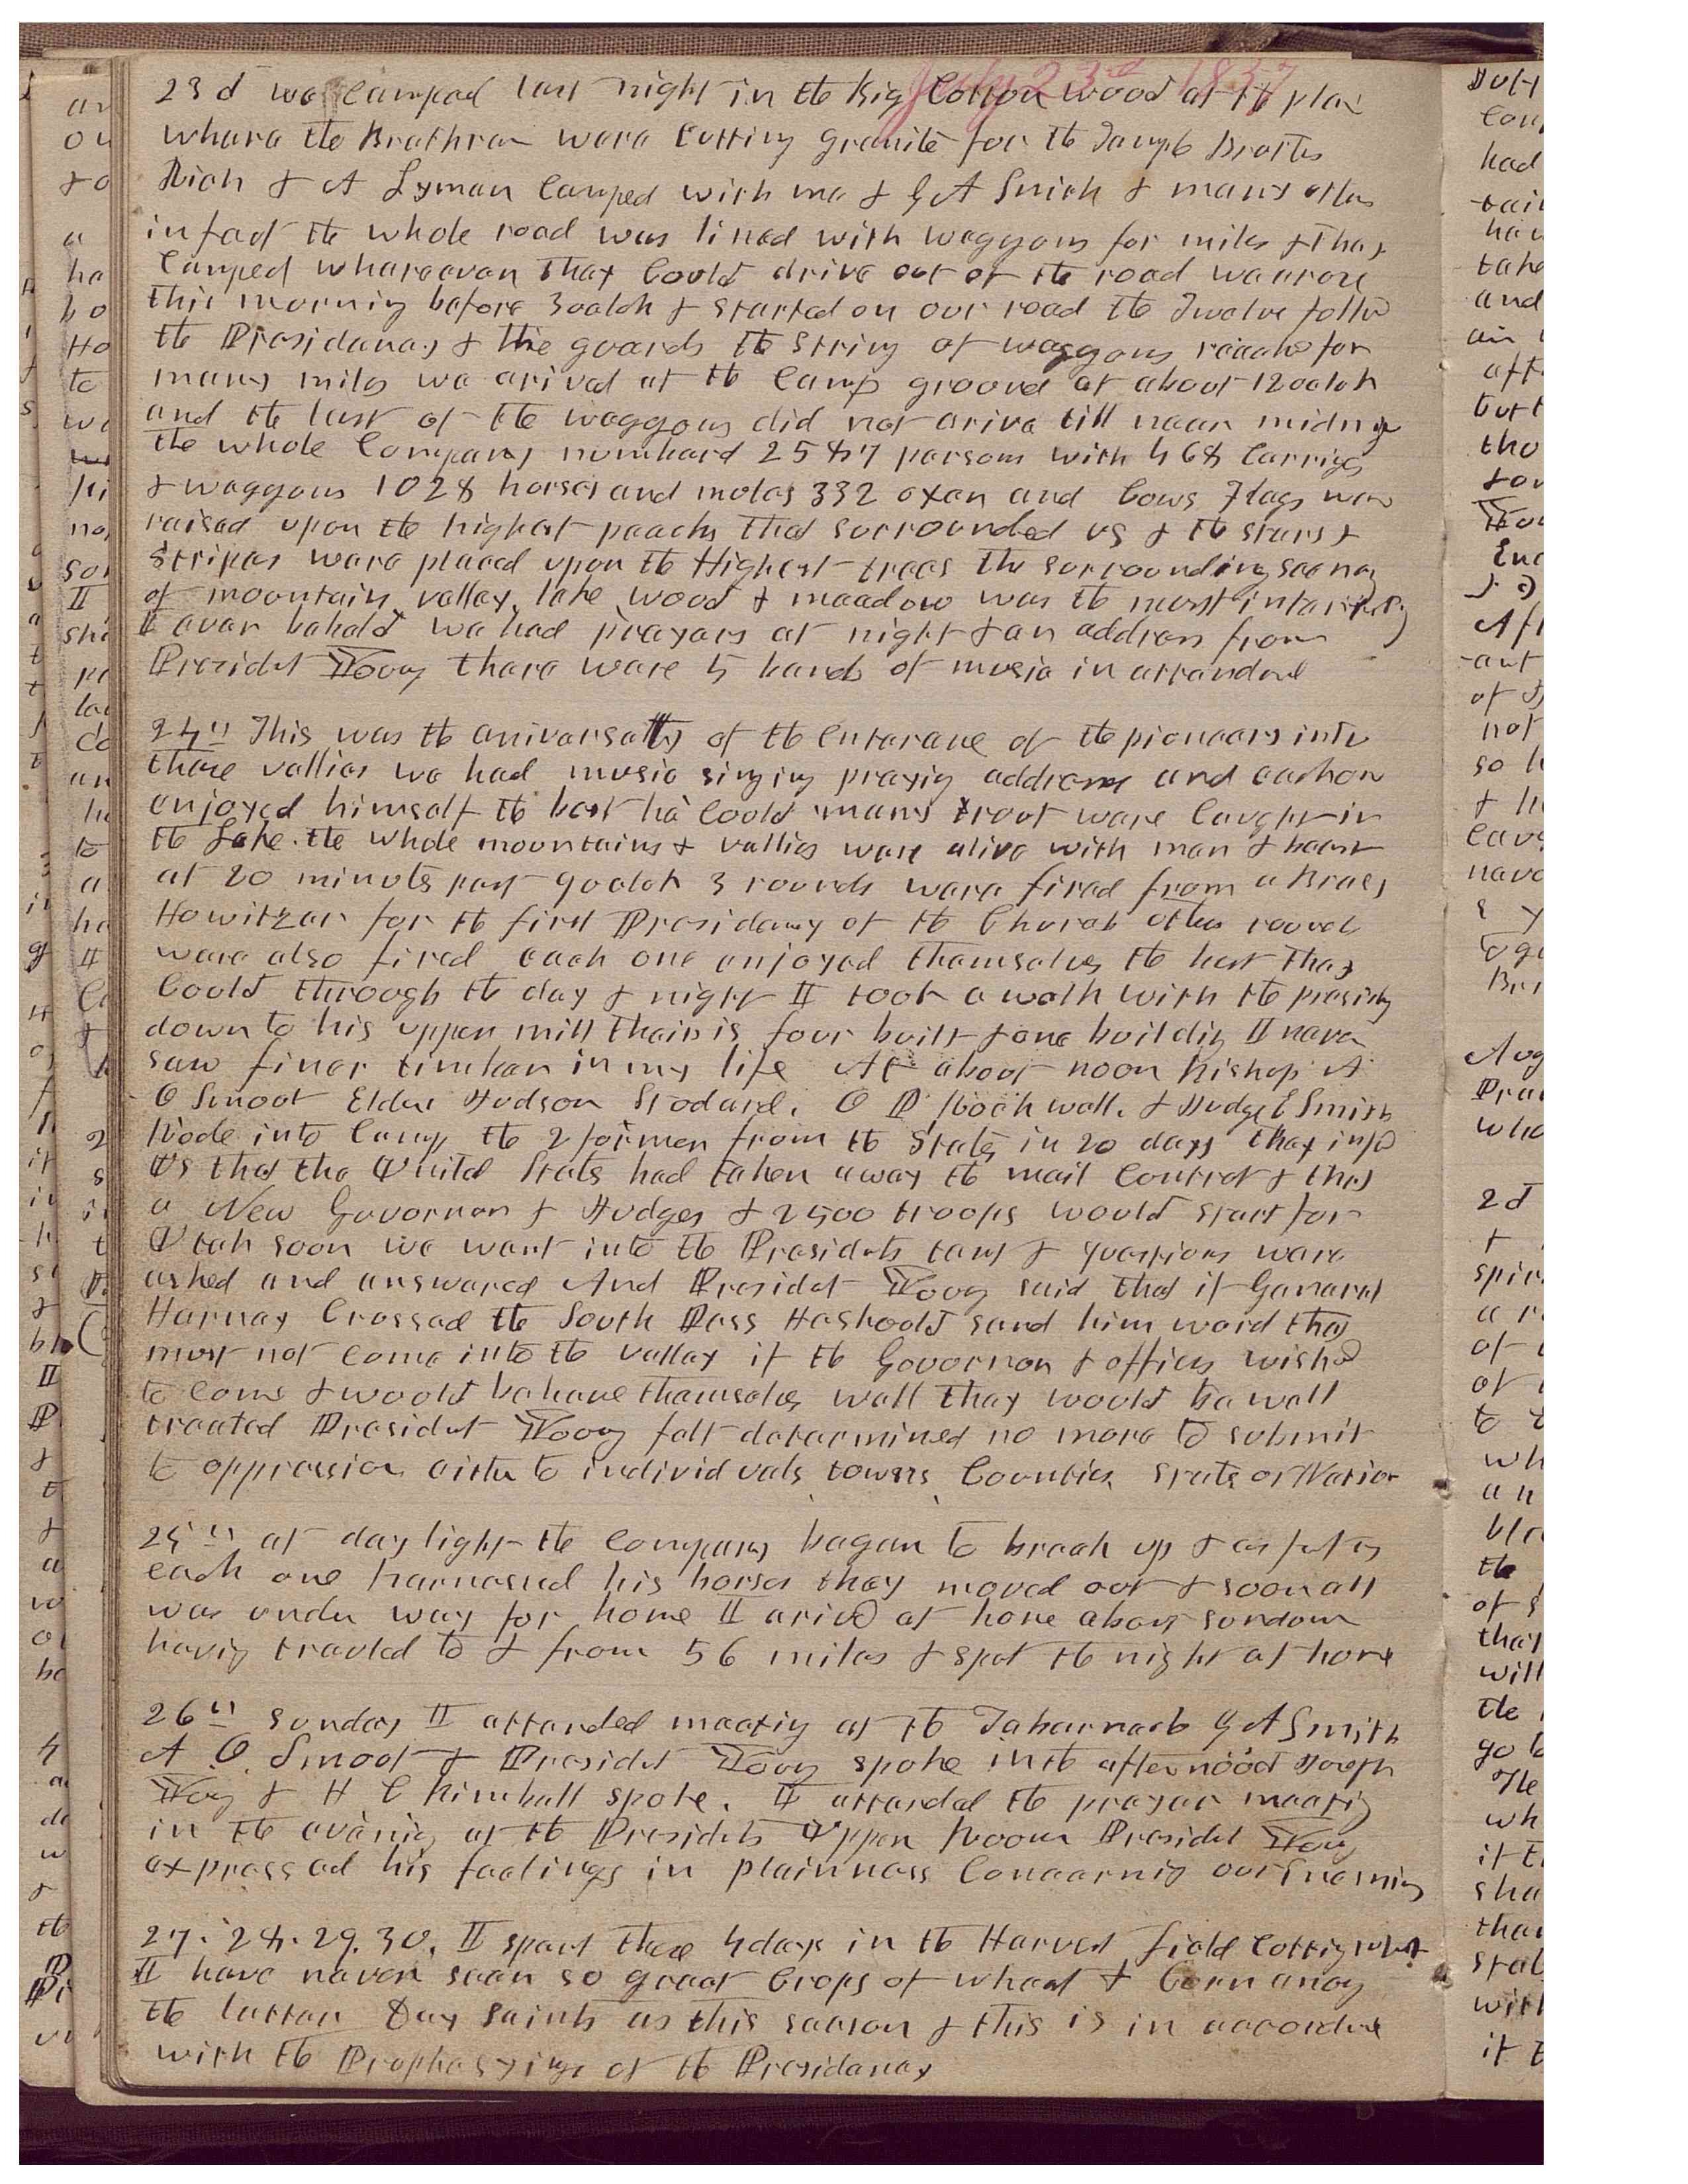 July 23rd 1857
23d we camped last night in the Big Cotton wood at the place
whare the Brethren ware cutting granite for the Temple Brothers
Rich & A Lyman camped with me & G A Smith & many others
in fact the whole road was lined with waggons for miles & they
camped whareever they could drive out of the road we arose
this morning before 3 oclok & started on our road the Twelve follwd
the Presidency & the guards the string of waggons reached for
many miles we arived at the camp ground at about 12 oclok
and the last of the waggons did not arive till near midnig
the whole company numbered 2587 persons with 468 carriges
& waggons 1028 horses and mules 332 oxen and cows Flags ware
raised upon the highest peachs that surrounded us & the stars &
stripes ware placed upon the Highest trees the surrounding scenery
of mountain, valley, lake wood & meadow was the most interesting
I ever beheld we had prayers at night & an address from
Presidet Young there ware 5 bands of music in attendance
24th This was the aniversatty of the enterance of the pioneers into
these vallies we had music singing praying addresses and each one
enjoyed himself the best he could many trout ware caught in
the Lake. the whole mountains & vallies ware alive with man & beast
at 20 minuts past 9 oclok 3 rounds ware fired from a Brass
Howitzer for the first Presidency of the Church other rounds
ware also fired each one enjoyed themselves the best they
could through the day & night I took a walk with the presidency
down to his upper mill their is four built & one building I never
saw finer timber in my life At about noon Bishop A
O Smoot Elder Judson Stodard. O P Rockwell. & Judge E Smith
Rode into camp the 2 former from the States in 20 days they infd
Us that the United States had taken away the mail contract & that
a New Govornor & Judges & 2500 troops would start for
Utah soon we went into the Presidets tent & questions ware
asked and answered And Presidet Young said that if General
Harney Crossed the South Pass He should send him word that
must not come into the valley if the Govornor & officers wished
to come & would behave themselves well they would be well
treated Presidet Young felt determined no more to submit
to oppression either to individuals towns, Counties, State or Nation
25th at day light the company began to break up & as fast as
each one harnessed his horses they moved out & soon all
was under way for home I arivd at home about sundown
having traveled to & from 56 miles & spet the night at home
26th sunday I attended meeting at the Tabernacle G A Smith
A. O. Smoot & Presidet Young spoke in the afternood Joseph
Young & H C Kimball spoke. I attended the prayer meeting
in the evening at the Presidets Upper Room Presidet Young
expressed his feelings in plainness concerning our Enemies
27. 28. 29. 30. I spent these 4 days in the Harvest field cutting wheat
I have never seen so great crops of wheat & corn among
the Latter Day Saints as this season & this is in accordance
with the Prophesyings of the Presidency